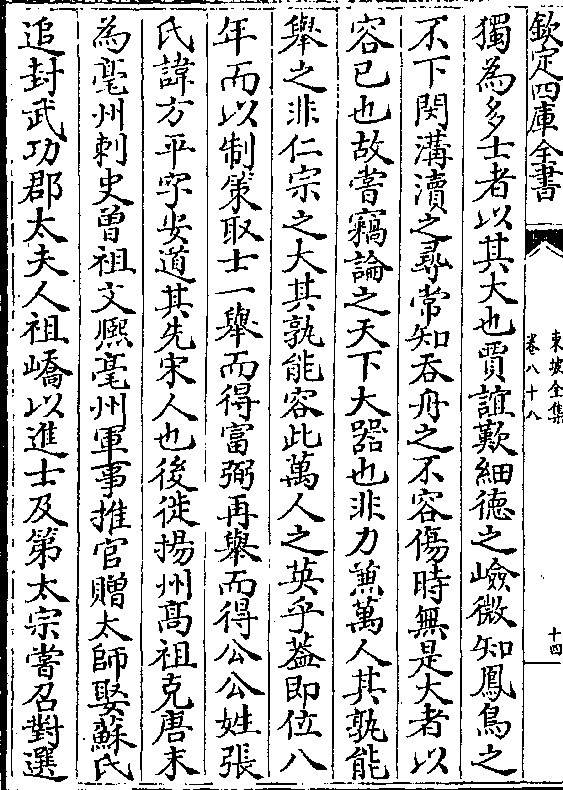 欽定四庫全書
東坡全集
卷八十八
十四
獨為多士者以其大也賈誼歎細德之嶮微知鳳鳥之
不下閔溝瀆之尋常知吞舟之不容傷時無是大者以
容已也故嘗竊論之天下大器也非力兼萬人其孰能
舉之非仁宗之大其孰能容此萬人之英乎蓋即位八
年而以制策取士一舉而得富弼再舉而得公公姓張
氏諱方平字安道其先宋人也後徙揚州高祖克唐末
為亳州刺史曾祖文熈亳州軍事推官贈太師娶蘇氏
追封武功郡太夫人祖嶠以進士及第太宗嘗召對選